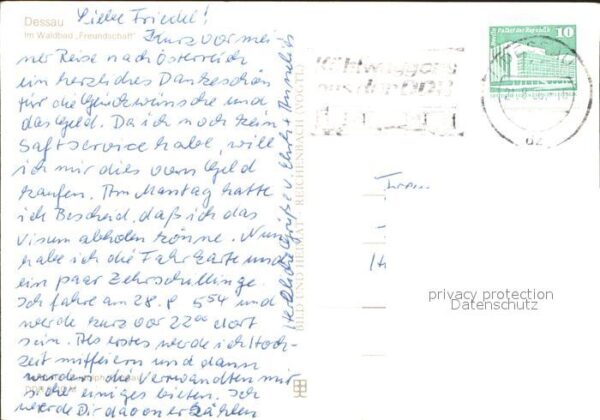 Dessau
Im Waldbad „Freundschaft"
Liebe Friedel!
Kurz vor mei-
ner Reise nach Österreich
ein herzliches Dankeschön
für die Glückwünsche und
das Geld. Da ich noch kein
Saftservice habe, will
ich mir dies vom Geld
kaufen. Am Montag hatte
ich Bescheid, daß ich das
Visum abholen könne. Nun
habe ich die Fahrkarte und
ein paar Zehrschillinge.
Ich fahre am 28.8 5⁵⁴ und
werde kurz vor 22⁰⁰ dort
sein. Als erstes werde ich Hoch-
zeit mitfeiern und dann
werden die Verwandten mir
sicher einiges bieten. Ich
werde Dir davon erzählen
Herzliche Grüße v.
BILD UND HEIMAT REICHENBACH (VOGTL)
Palast der Republik
10
DDR
Frau
privacy protection
Datenschutz